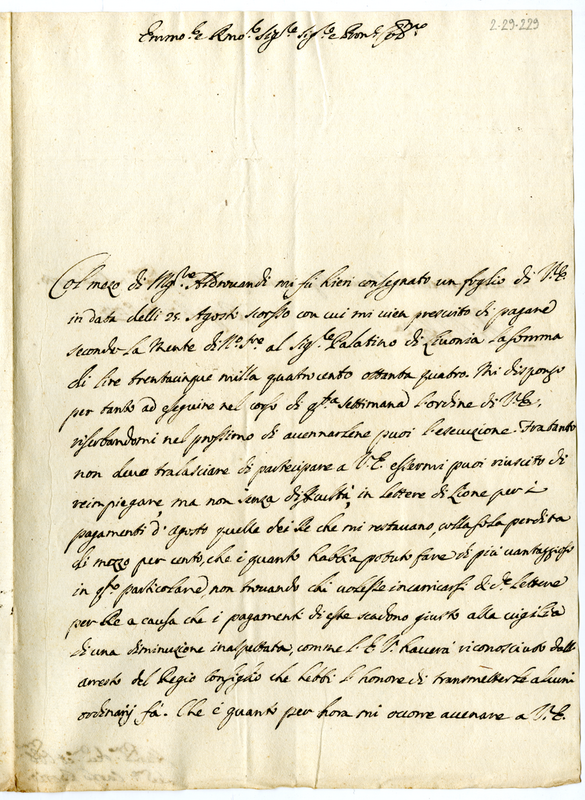 Emmo. e Rmo. Sigre. Sigre. e Pron.
2-29-229
Col mezo di Mgre. Aldrouandi mi fù hieri consegnato un foglio di V.E.
in data delli 25. Agosto scorso con cui mi uien prescrito di pagare
secondo la Mente di N.ro Sre. al Sigre. Palatino di Liuonia la somma
di lire trentacinque milla quatrocento ottanta quatro. Mi dispongo
per tanto ad eseguire nel corso di qta. settimana l'ordine di V.E.,
riserbandomi nel prossimo di auennarlene puoi l'esecuzione. Fratanto
non deuo tralasciare di partecipare a V.E. essermi puoi riuscito di
reimpiegare, ma non senza difficultà, in lettere di Lione per i
pagamenti d'agosto quelle dei Re che mi restauano, colla sola perdita
di mezzo per cento, che è quanto habbia potuto fare di più uantaggioso
in qto. particolare, non trouando chi uolesse incarricarsi di de. lettere
per Re a causa che i pagamenti di esse scadono giusto alla uigilia
di una diminuzione inaspettata, comme l'E.V. hauerà riconosciuto dall'
arresto del Regio Consiglio che hebbi l'honore di transmetterle alcuni
ordinarij fà. Che è quanto per hora mi occorre auenare a V.E.